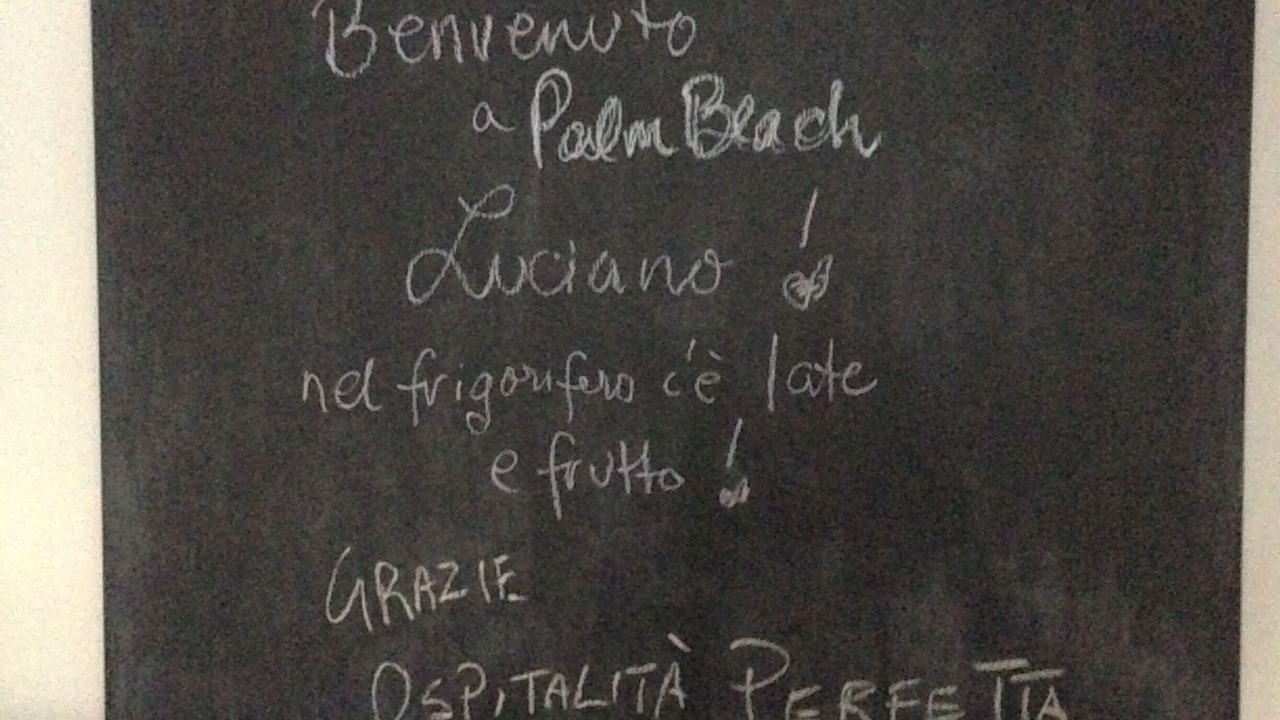 Benvenuto
a Palm Beach
Luciano!
nel frigorifero c'è late
e frutto!
GRAZIE
OSPITALITÀ PERFETTA